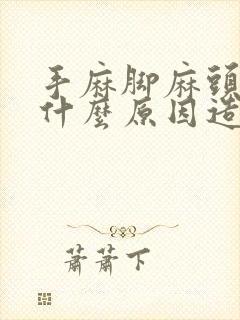 手麻脚麻頭
什麼原因造
蕭蕭下